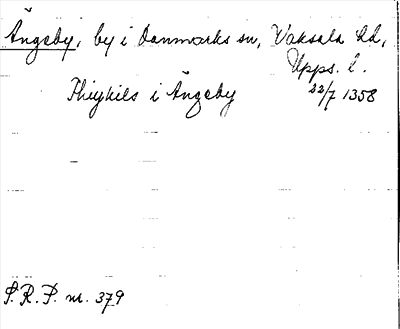 Ängeby, by i Danmarks sn, Vaksala hd,
Upps. l.
Thiykils i Ängeby 22/7 1358
S.R.P. nr. 379